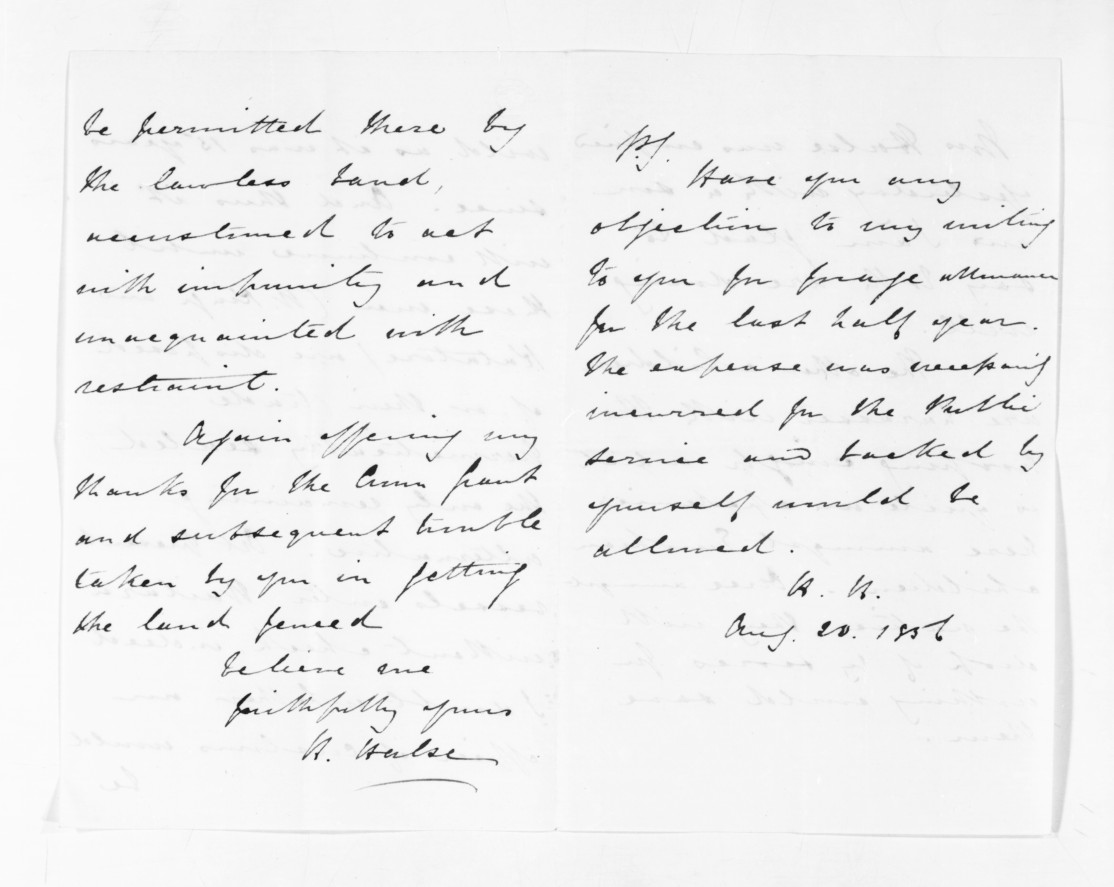 be permitted there by
the lawless band,
accustomed to act
with impunity and
unacquainted with
restraint.
Again offering my
thanks for the Crown Grant
and subsequent trouble
taken by you in getting
the land fenced
believe me
faithfully yours
H. Halse
P.S.
Have you any
objection to my writing
to you for forage allowance
for the last half year.
The expense was necessarily
incurred for the Public
service and backed by
yourself would be
allowed.
H. H.
Aug. 20. 1856